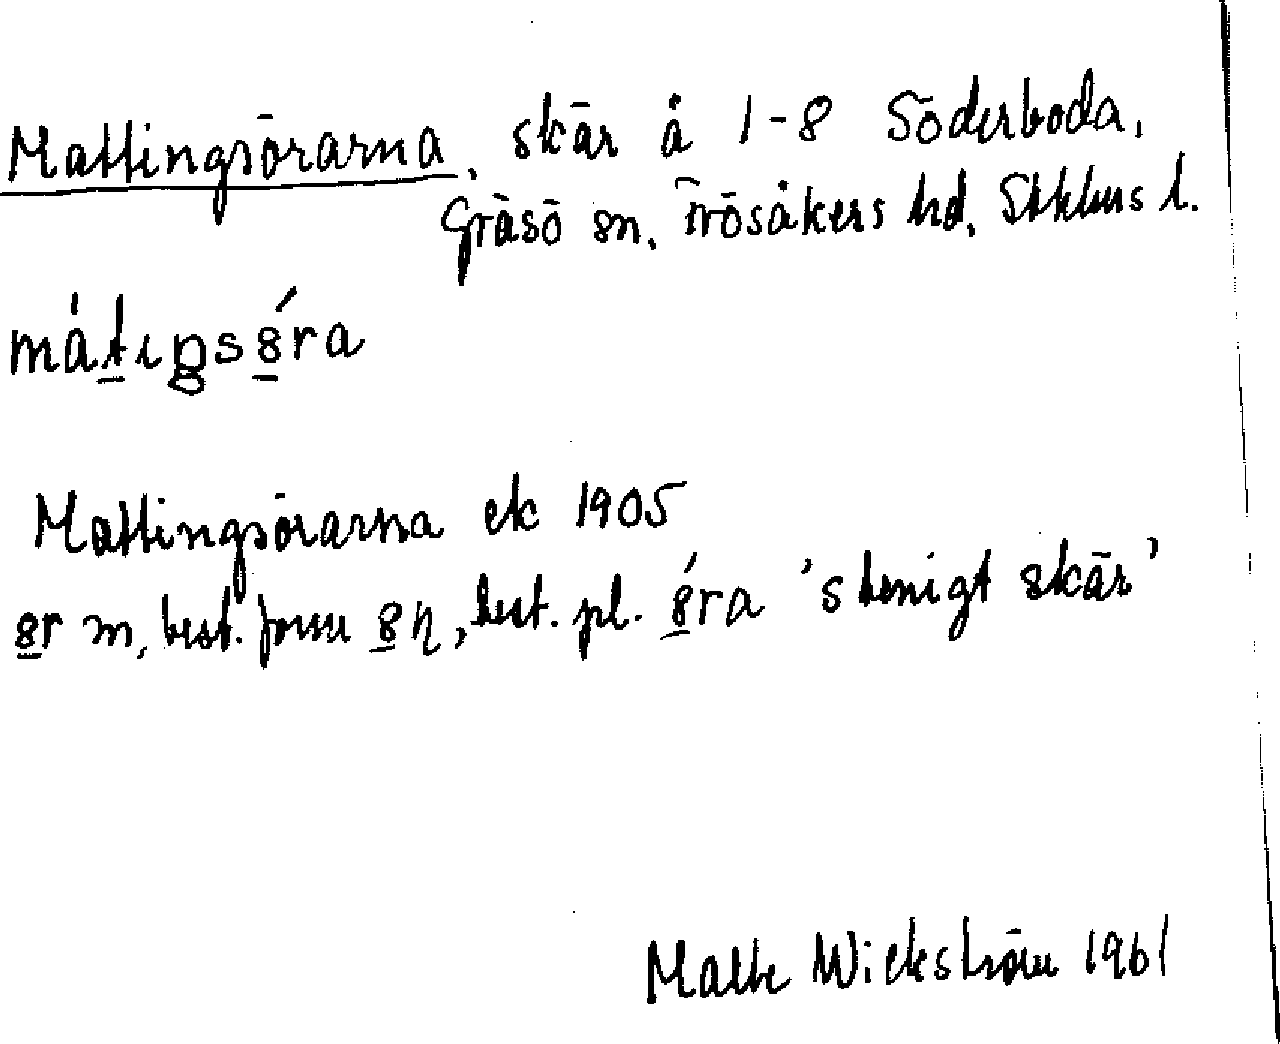 Mattingsörarna, skär å 1-8 Söderboda,
Gräsö sn, Frösåkers hd, Stklms l.
mátıŋsȣ́ra
Mattingsörarna ek 1905
ȣr m, best. form ȣn, best. pl. ȣ́ra 'stenigt skär'
Wickström 1961